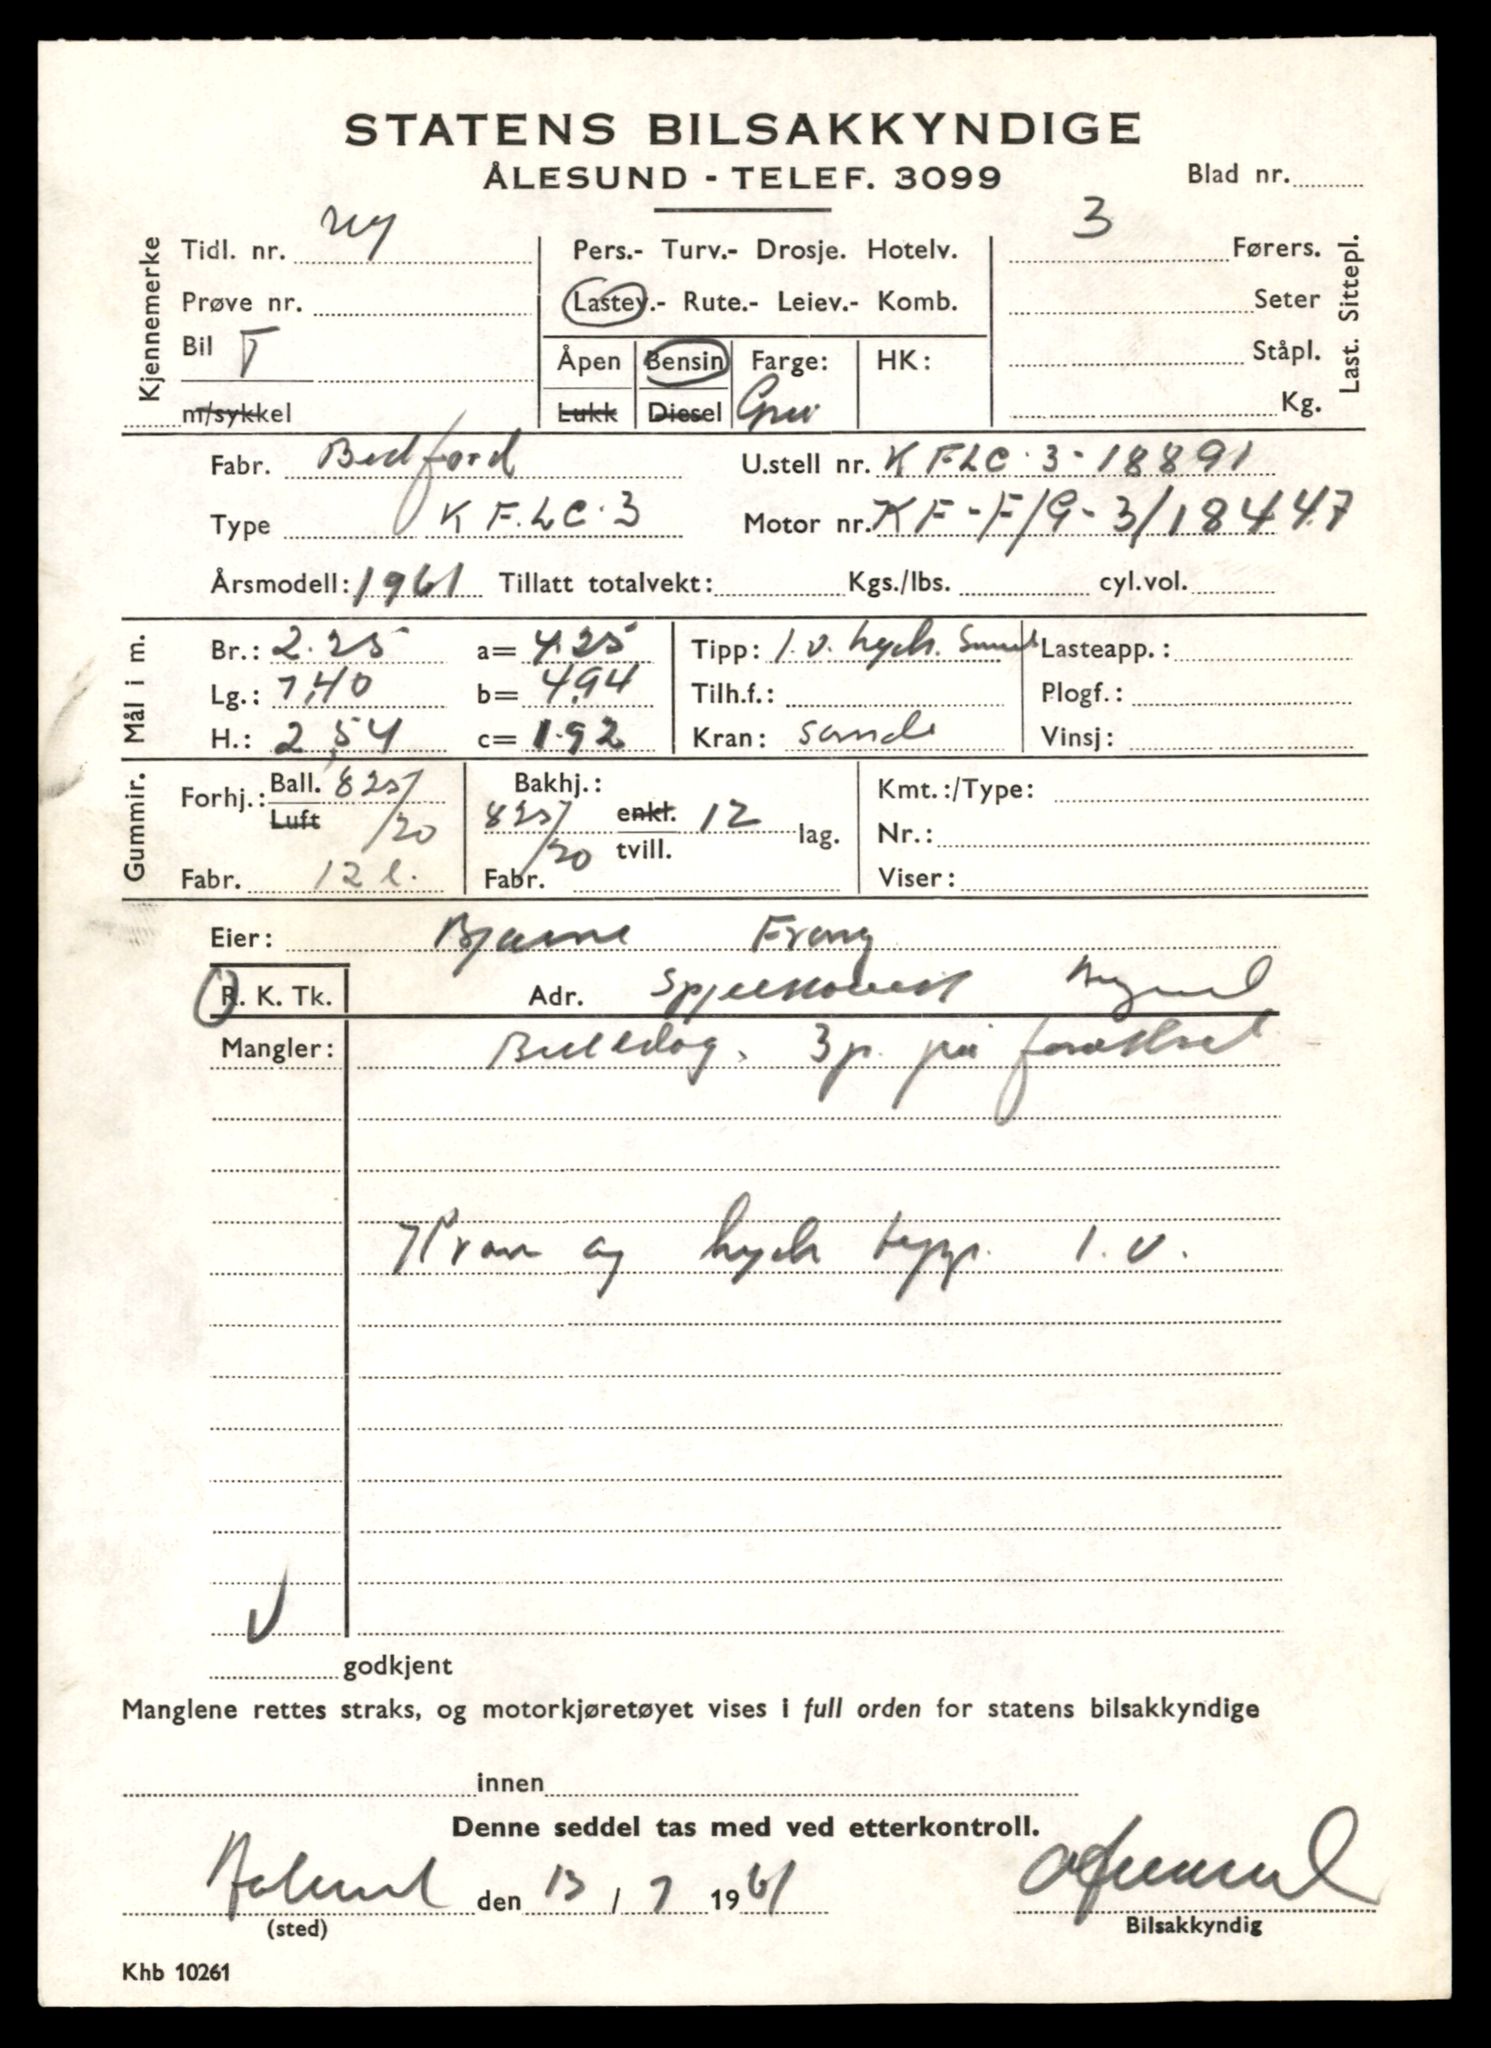 STATENS BILSAKKYNDIGE
ÅLESUND - TELEF. 3099
Blad nr.
Kjennemerke
Tidl. nr. ny
Prøve nr.
Bil T
m/sykkel
Pers.- Turv.- Drosje. Hotelv.
Lastev.- Rute.- Leiev.- Komb.
Åpen Bensin Farge: HK:
Lukk Diesel
3 Førers.
Seter
Ståpl.
Kg.
Last. Sittepl.
Fabr. Bedford U.stell nr. KFLC·3-18891
Type KF.LC·3 Motor nr. KF-F/G-3/18447
Årsmodell: 1961 Tillatt totalvekt: Kgs./lbs. cyl.vol.
Mål i m.
Br.: 2.25 a= 4.25 Tipp: 1.v. hydr. Lasteapp.:
Lg.: 7,40 b= 4,94 Tilh.f.: Plogf.:
H.: 2,54 c= 1.92 Kran: Vinsj:
Gummir.
Forhj.: Ball. 825/20
Luft
Fabr. 12 l.
Bakhj.:
825/20 enkt. 12 lag.
tvill.
Fabr.
Kmt.:/Type:
Nr.:
Viser:
Eier: Bjarne
R. K. Tk. Adr.
Mangler: Bulldog. 3 p. på forsetet
Kran og hydr tipp. 1.v.
godkjent
Manglene rettes straks, og motorkjøretøyet vises i full orden for statens bilsakkyndige
innen
Denne seddel tas med ved etterkontroll.
Aalesund den 13/7 1961
(sted)
Bilsakkyndig
Khb 10261